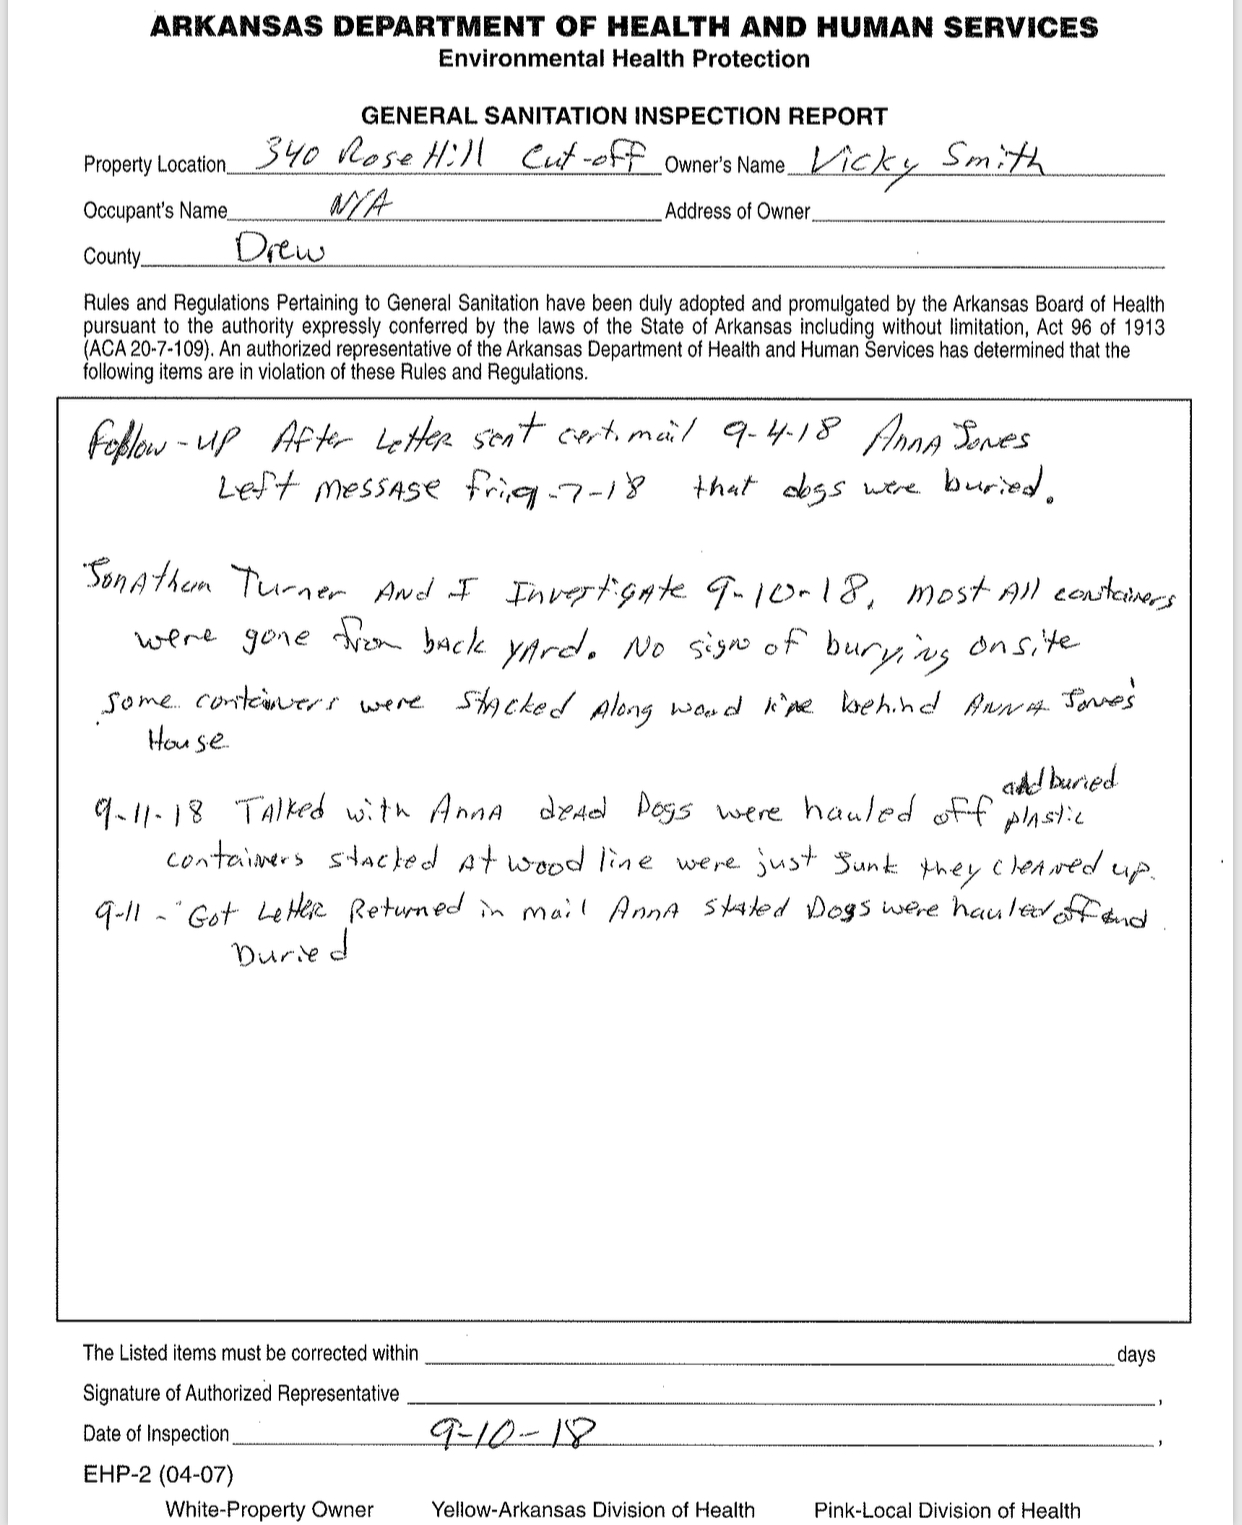 ARKANSAS DEPARTMENT OF HEALTH AND HUMAN SERVICES
Environmental Health Protection
GENERAL SANITATION INSPECTION REPORT
Property Location 340 Rose Hill Cut-off Owner's Name Vicky Smith
Occupant's Name N/A Address of Owner
County Drew
Rules and Regulations Pertaining to General Sanitation have been duly adopted and promulgated by the Arkansas Board of Health
pursuant to the authority expressly conferred by the laws of the State of Arkansas including without limitation, Act 96 of 1913
(ACA 20-7-109). An authorized representative of the Arkansas Department of Health and Human Services has determined that the
following items are in violation of these Rules and Regulations.
Follow-up After Letter sent cert. mail 9-4-18 Anna Jones
Left message fri, 9-7-18 that dogs were buried.
Jonathan Turner And I Investigate 9-10-18, most All containers
were gone from back yard. No sign of burying onsite
Some containers were stacked Along wood line behind Anna Jones'
House
and buried
9-11-18 Talked with Anna dead Dogs were hauled off plastic
containers stacked At wood line were just Junk they cleaned up.
9-11 - Got Letter Returned in mail Anna stated Dogs were hauled off and
Buried
The Listed items must be corrected within days
Signature of Authorized Representative ,
Date of Inspection 9-10-18 ,
EHP-2 (04-07)
White-Property Owner Yellow-Arkansas Division of Health Pink-Local Division of Health